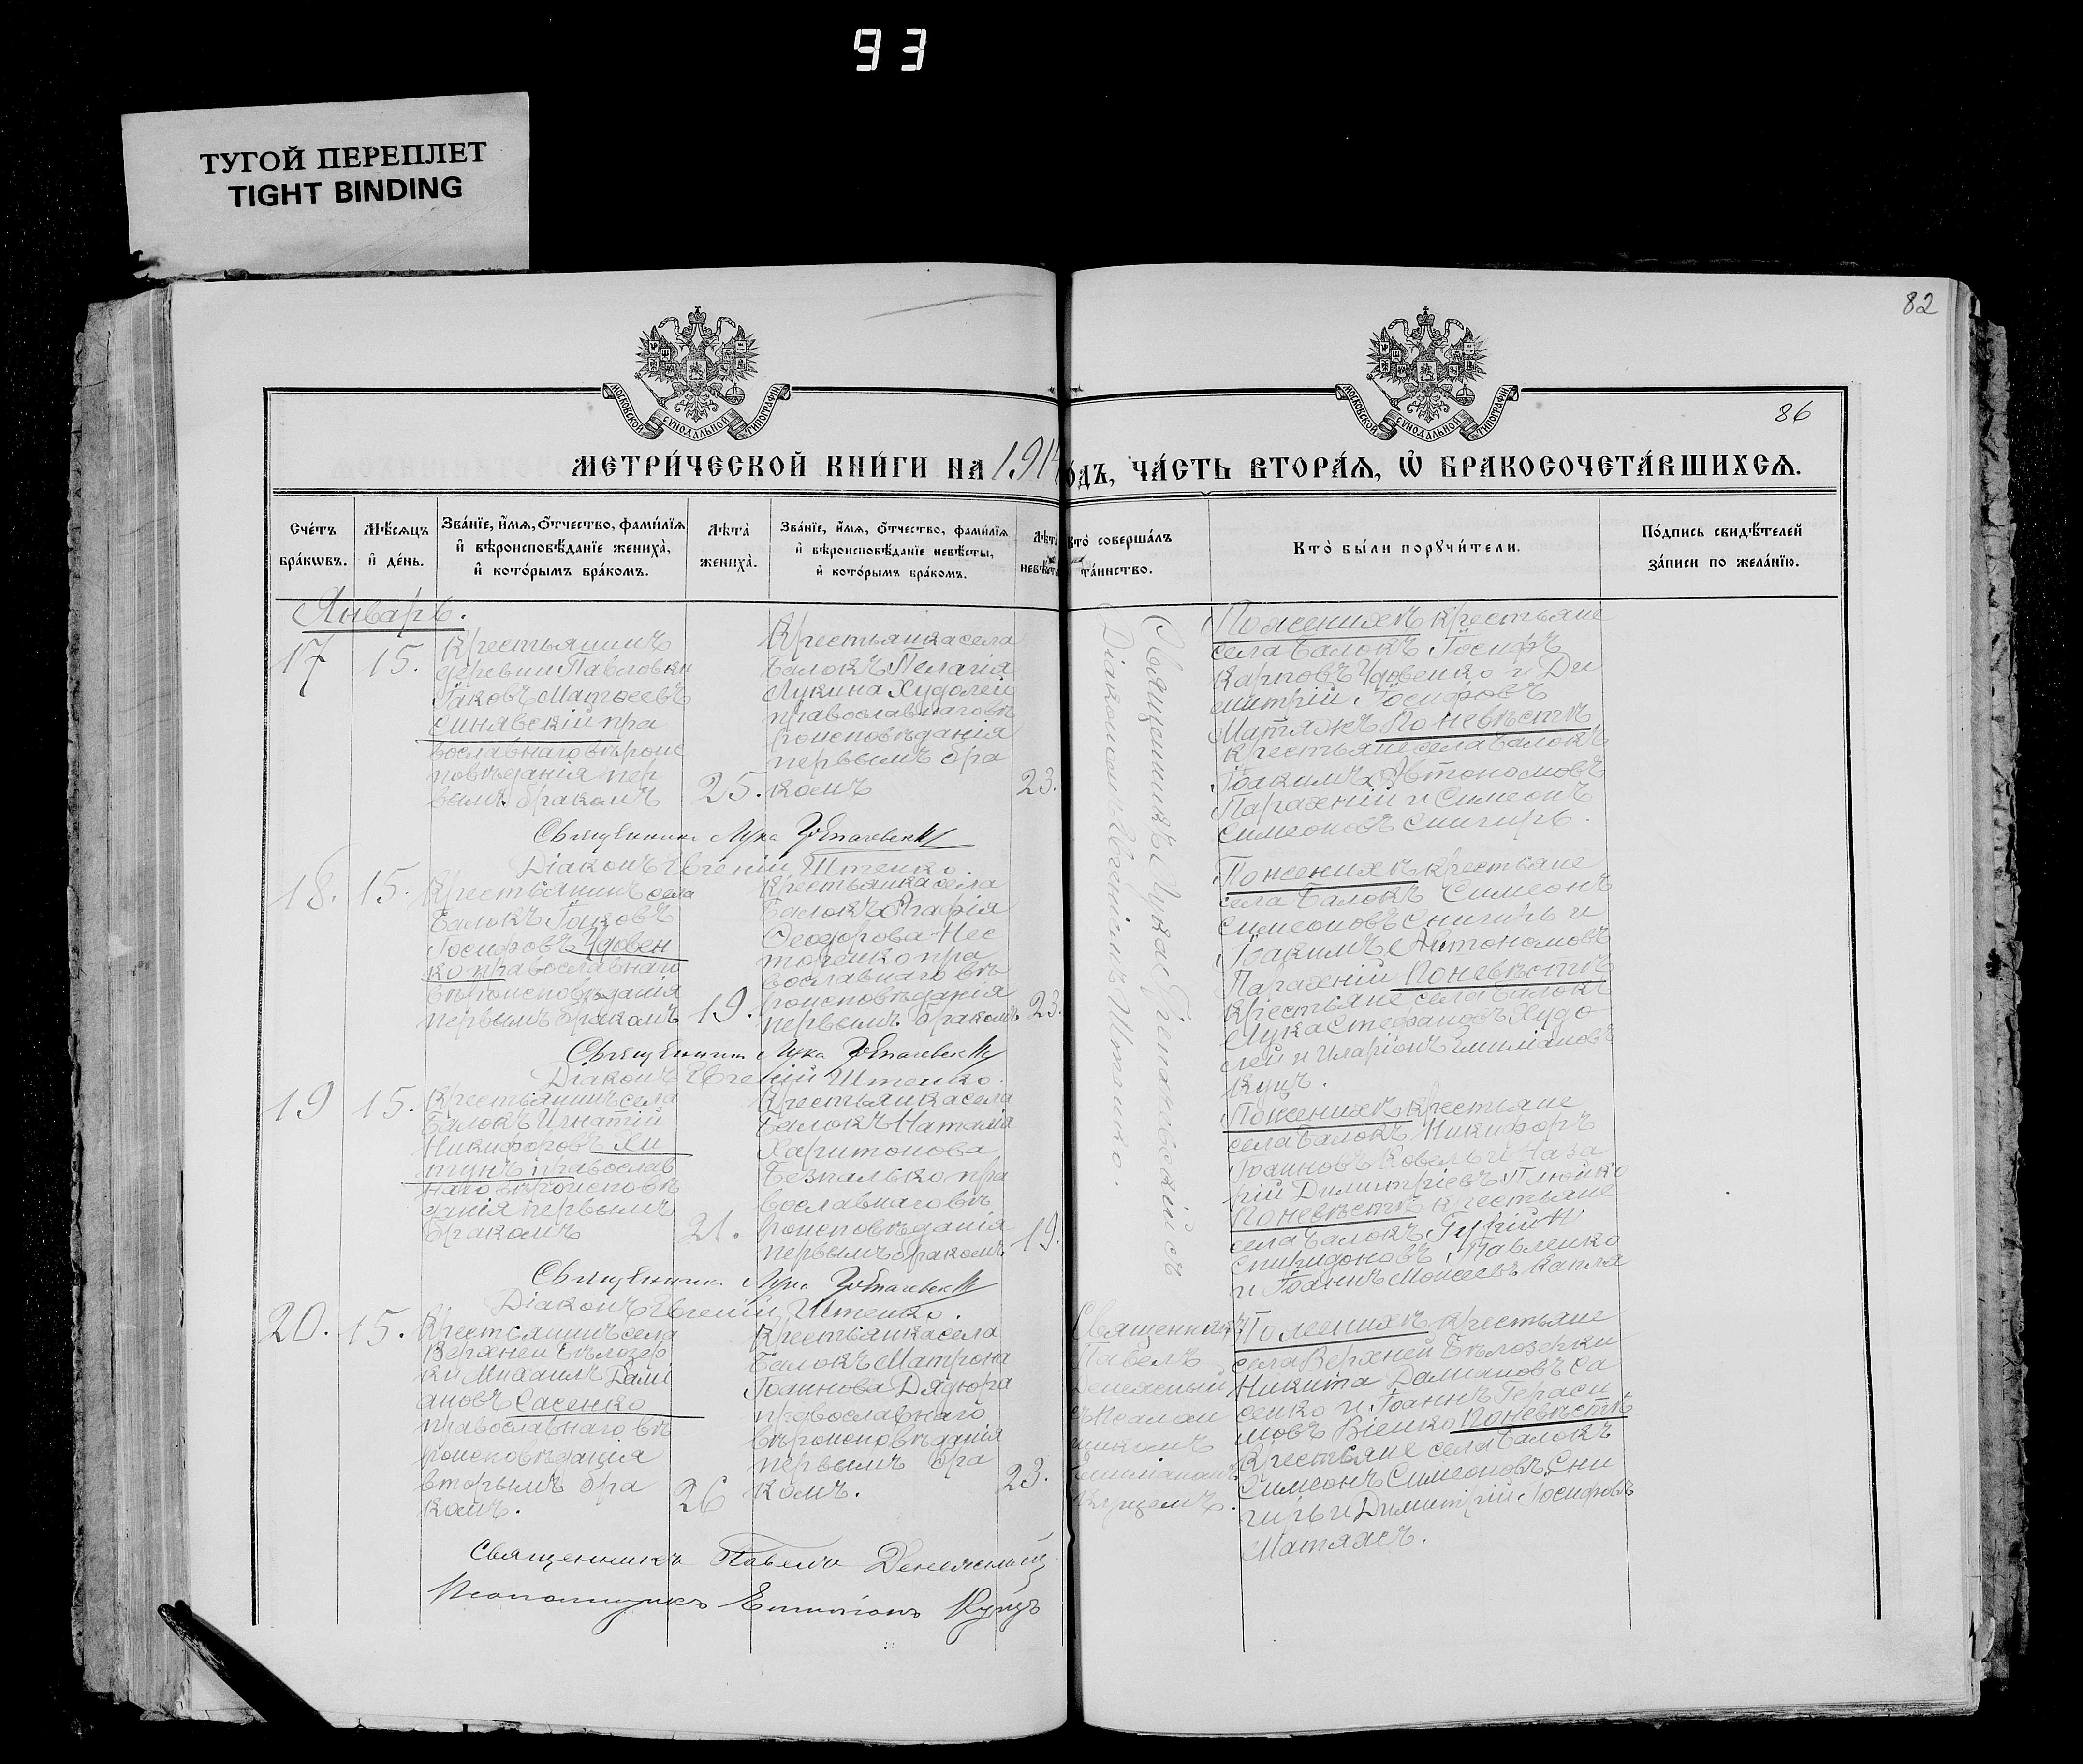 93
ТУГОЙ ПЕРЕПЛЕТ
TIGHT BINDING
82
МОСКОВСКОЙ СѴНОДАЛЬНОЙ ТИПОГРАФІИ
МОСКОВСКОЙ СѴНОДАЛЬНОЙ ТИПОГРАФІИ
86
МЕТРИ́ЧЕСКОЙ КНИ́ГИ НА 1914
ОДЪ, ЧА́СТЬ ВТОРА́Ѧ, Ѡ҆ БРАКОСОЧЕТА́ВШИХСѦ.
Сче́тъ
бра́кѡвъ.
Мѣ́сѧцъ
и҆ де́нь.
Зва́нїе, и҆́мѧ, ѻ҆́тчество, фами́лїѧ
и҆ вѣроисповѣ́данїе жениха̀,
и҆ кото́рымъ бра́комъ.
Лѣ́та̀
жениха̀.
Зва́нїе, и҆́мѧ, ѻ҆́тчество, фами́лїѧ
и҆ вѣроисповѣ́данїе невѣ́сты,
и҆ кото́рымъ бра́комъ.
Лѣ́та
невѣ́сты
Кто̀ соверша́лъ
та́инство.
Кто̀ бы́ли порꙋчи́тели.
По́дпись свидѣ́телей
за́писи по жела́нїю.
Январь.
17
15.
Крестьянинъ
деревни Павловки
Іаковъ Матѳеевъ
Синявскій пра
вославнаго вѣроис
повѣданія пер
вымъ бракомъ
25.
Крестьянка села
Балокъ Пелагія
Лукина Худолей
православнаго вѣ
роисповѣданія
первымъ бра
комъ
23.
Священникъ Лука
Діаконъ Евгеній Штепко.
Священникъ Лука
съ
Діакономъ Евгеніемъ Штепко.
По женихѣ крестьяне
села Балокъ Іосифъ
Карповъ Удовенко и Ди
митрій Іосифовъ
Матяжъ По невѣстѣ
крестьяне села Балокъ
Іоакимъ Автономовъ
Парахній и Симеонъ
Симеоновъ Снигирь.
18.
15.
Крестьянинъ села
Балокъ Іаковъ
Іосифовъ Удовен
ко православнаго
вѣроисповѣданія
первымъ бракомъ
19.
Крестьянка села
Балокъ Агафія
Ѳеодорова Нес
теренко пра
вославнаго вѣ
роисповѣданія
первымъ бракомъ
23.
Священникъ Лука
Діаконъ Евгеній Штепко.
По женихѣ крестьяне
села Балокъ Симеонъ
Симеоновъ Снигирь и
Іоакимъ Автономовъ
Парахній По невѣстѣ
крестьяне села Балокъ
Лука Стефановъ Худо
лей и Иларіонъ Емиліановъ
Куцъ.
19
15.
Крестьянинъ села
Балокъ Игнатій
Никифоровъ
православ
наго вѣроисповѣ
данія первымъ
бракомъ
21.
Крестьянка села
Балокъ Наталія
Харитонова
Безпалько пра
вославнаго вѣ
роисповѣданія
первымъ бракомъ
19.
Священникъ Лука
Діаконъ Евгеній Штепко.
По женихѣ крестьяне
села Балокъ Никифоръ
Іоанновъ Ковель и Наза
рій Димитріевъ
По невѣстѣ крестьяне
села Балокъ
Спиридоновъ Павленко
и Іоаннъ Моисеевъ Капля
20.
15.
Крестьянинъ села
Верхней Бѣлозер
ки Михаилъ Дамі
ановъ Сасенко
православнаго вѣ
роисповѣданія
вторымъ бра
комъ.
26
Крестьянка села
Балокъ Матрона
Іоаннова Дядюра
православнаго
вѣроисповѣданія
первымъ бра
комъ.
23.
Священникъ
Павелъ
Денежный
съ Псалом
щикомъ
Емиліаномъ
Куцемъ.
По женихѣ крестьяне
села Верхней Бѣлозерки
Никита Даміановъ Са
сенко и Іоаннъ Гераси
мовъ Віенко По невѣстѣ
крестьяне села Балокъ
Симеонъ Симеоновъ Сни
гирь и Димитрій Іосифовъ
Матяжъ.
Священникъ Павелъ Денежный
Псаломщикъ Емиліанъ Куцъ